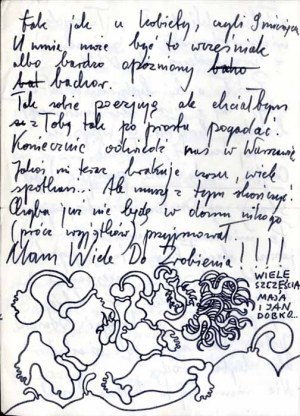 tak jak u kobiety, czyli 9 miesięcy
U mnie może być to wcześniak
albo bardzo opóźniony
bachor.
Tak sobie poezjuję ale chciałbym
z Tobą tak po prostu pogadać.
Koniecznie odwiedź nas w Warszawie
Jakoś mi teraz brakuje czasu, wiele
spotkań... Ale muszę z tym skończyć.
Chyba już nie będę w domu nikogo
(prócz wyjątków) przyjmował.
Mam Wiele Do Zrobienia!!!!
WIELE
SZCZĘŚCIA
MAJA
I JAN
DOBKO...